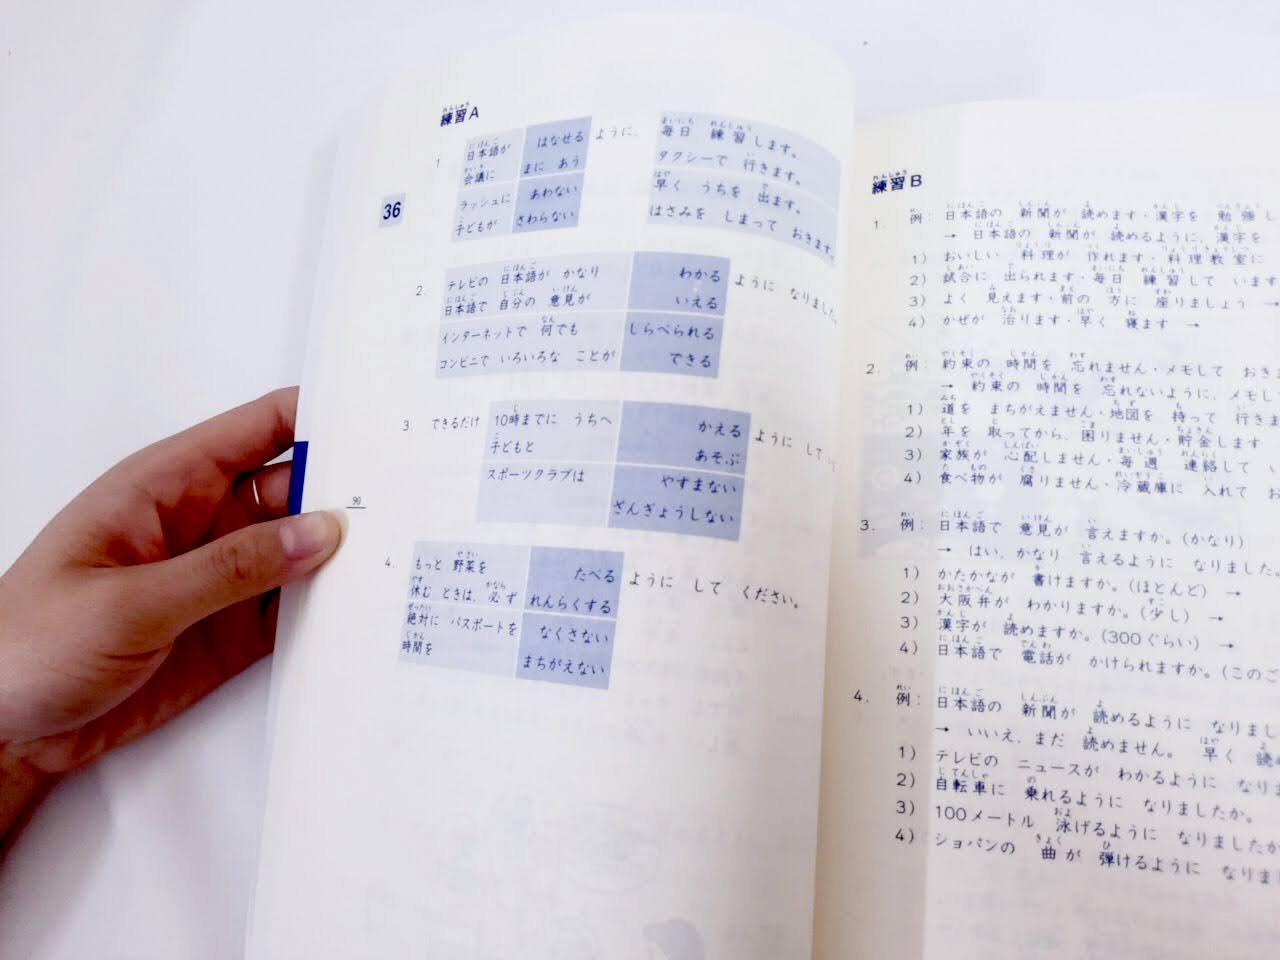 練習A
1 日本語が はなせる ように、 毎日 練習します。
会議に まに あう タクシーで 行きます。
ラッシュに あわない 早く うちを 出ます。
子どもが さわらない はさみを しまって おきます。
36
2. テレビの 日本語が かなり わかる ように なりました
日本語で 自分の 意見が いえる
インターネットで 何でも しらべられる
コンビニで いろいろな ことが できる
3. できるだけ 10時までに うちへ かえる ように して
子どもと あそぶ
スポーツクラブは やすまない
ざんぎょうしない
90
4. もっと 野菜を たべる ように して ください。
休む ときは、必ず れんらくする
絶対に パスポートを なくさない
時間を まちがえない
練習B
1. 例: 日本語の 新聞が 読めます・漢字を 勉強し
→ 日本語の 新聞が 読めるように、漢字を
1) おいしい 料理が 作れます・料理教室に
2) 試合に 出られます・毎日 練習して います
3) よく 見えます・前の 方に 座りましょう →
4) かぜが 治ります・早く 寝ます →
2. 例: 約束の 時間を 忘れません・メモして おき
→ 約束の 時間を 忘れないように、メモし
1) 道を まちがえません・地図を 持って 行きま
2) 年を 取ってから、困りません・貯金します
3) 家族が 心配しません・毎週 連絡して い
4) 食べ物が 腐りません・冷蔵庫に 入れて お
3. 例: 日本語で 意見が 言えますか。(かなり)
→ はい、かなり 言えるように なりました。
1) かたかなが 書けますか。(ほとんど) →
2) 大阪弁が わかりますか。(少し) →
3) 漢字が 読めますか。(300ぐらい) →
4) 日本語で 電話が かけられますか。(このご
4. 例: 日本語の 新聞が 読めるように なりまし
→ いいえ、まだ 読めません。 早く 読め
1) テレビの ニュースが わかるように なりま
2) 自転車に 乗れるように なりましたか。
3) 100メートル 泳げるように なりましたか
4) ショパンの 曲が 弾けるように なりまし